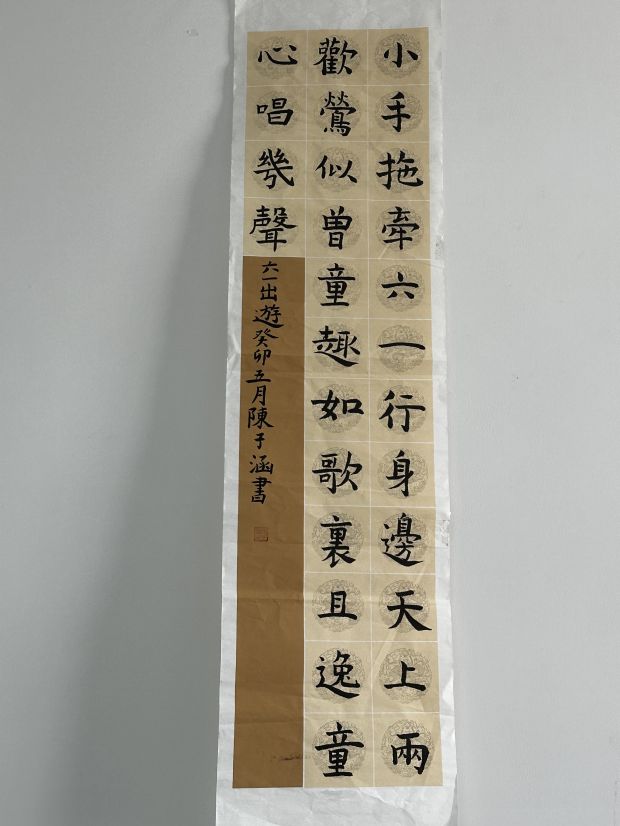 小手拖牽六一行身邊天上兩
歡鶯似曽童趣如歌裏且逸童
心唱幾聲
六一出遊癸卯五月陳子涵書